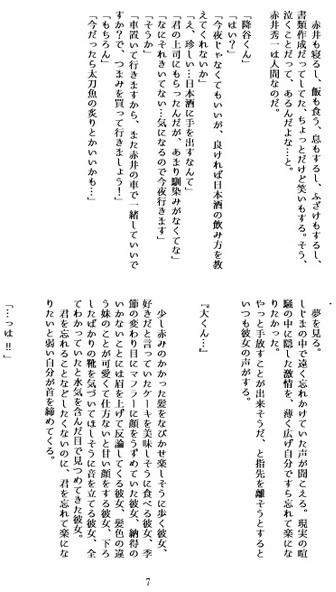 赤井も寝るし、飯も食う、息もするし、ふざけもするし、
書類作成だってしてた、ちょっとだけど笑いもする。そう、
泣くことだって、あるんだよな…と。
赤井秀一は人間なのだ。
「降谷くん」
「はい?」
「今夜じゃなくてもいいが、良ければ日本酒の飲み方を教
えてくれないか」
「え、珍しい…日本酒に手を出すなんて」
「君の上司にもらったんだが、あまり馴染みがなくてな」
「なにそれきいてない…気になるので今夜行きます」
「そうか」
「車置いて行きますから、また赤井の車で一緒していいで
すか?で、つまみを買って行きましょう!」
「もちろん」
「今だったら太刀魚の炙りとかいいかも…」
夢を見る。
しじまの中で遠く忘れかけていた声が聞こえる。現実の喧
騒の中に隠した激情を、薄く広げ自分ですら忘れて楽にな
りたかった。
やっと手放すことが出来そうだ、と指先を離そうとすると
いつも彼女の声がする。
『大くん…』
少し赤みのかかった髪をなびかせ楽しそうに歩く彼女、
好きだと言っていたケーキを美味しそうに食べる彼女、季
節の変わり目にマフラーに顔をうずめていた彼女、納得の
いかないことには眉を上げて反論してくる彼女、髪色の違
う妹のことが可愛くて仕方ないと甘い顔をする彼女、下ろ
したばかりの靴を気づいてほしそうに音を立てる彼女、全
てわかっていたと水気を含んだ目で見つめてきた彼女。
君を忘れることなどしたくないのに、君を忘れて楽にな
りたいと弱い自分が首を締めてくる。
「…っは!!」
7